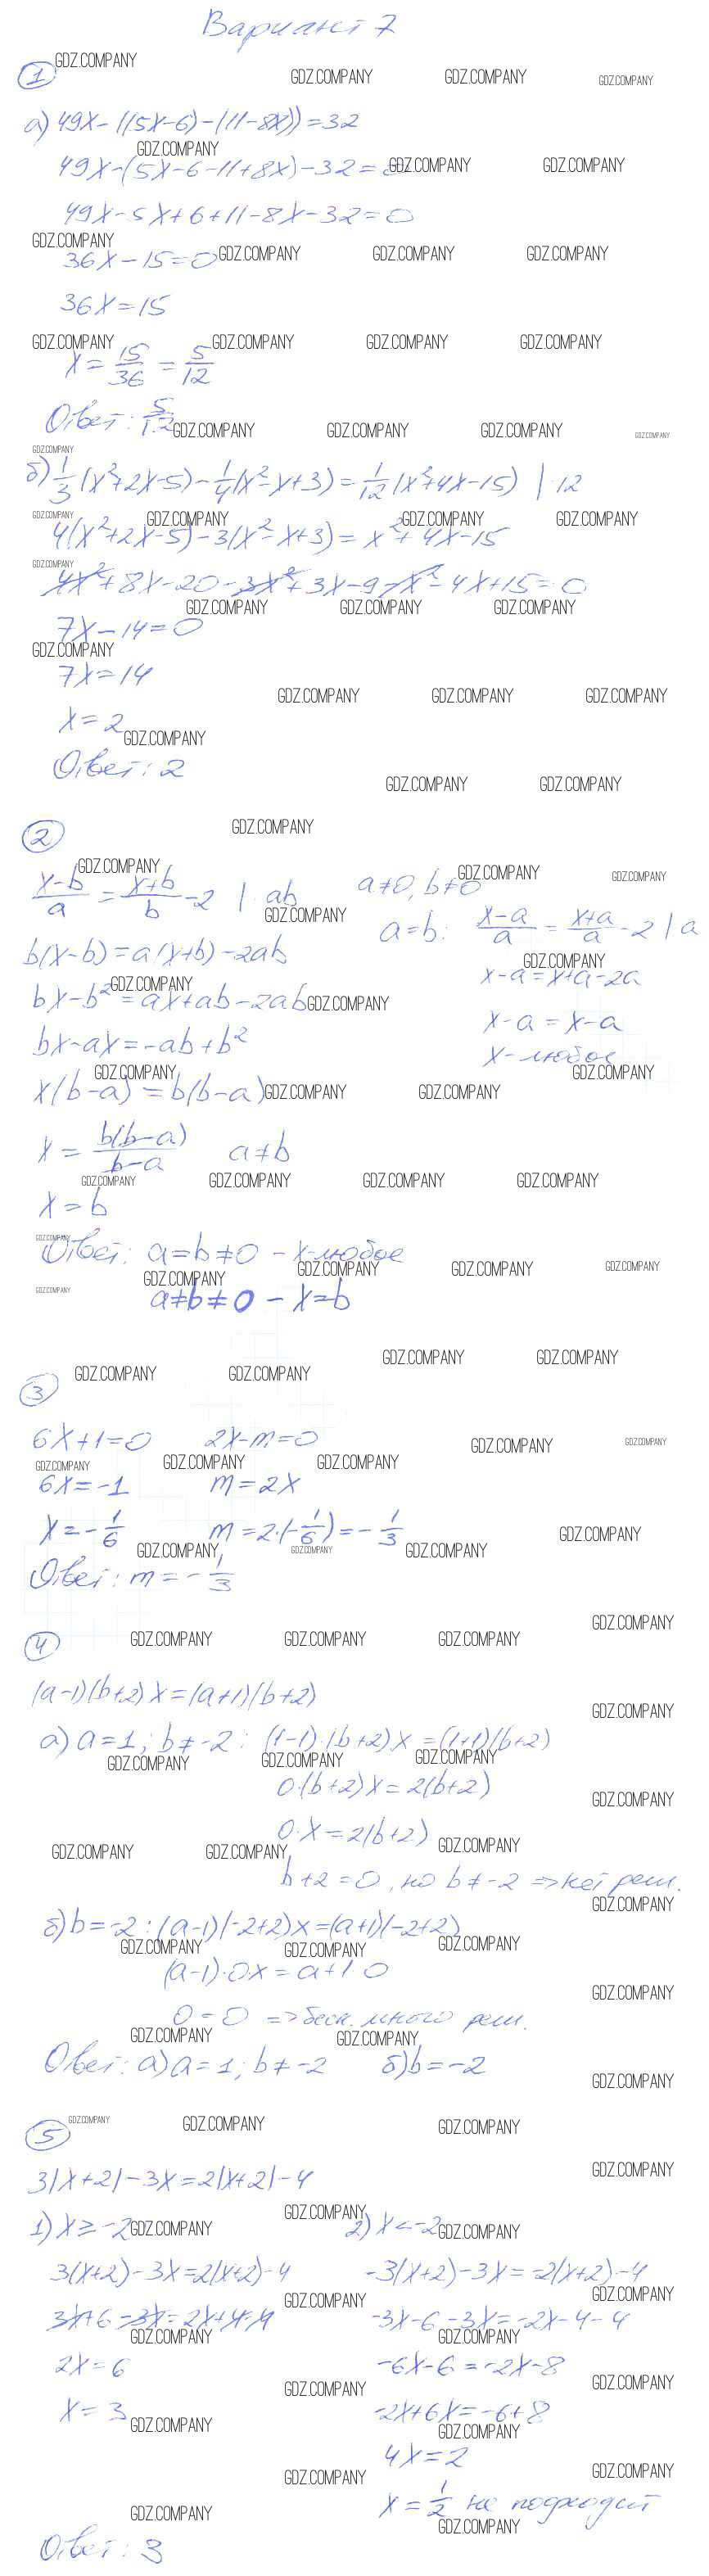 Вариант 7
1
а) 49x-((5x-6)-(11-8x))=32
49x-(5x-6-11+8x)-32=0
49x-5x+6+11-8x-32=0
36x-15=0
36x=15
x=15/36=5/12
Ответ: 5/12
б) 1/3(x²+2x-5)-1/4(x²-x+3)=1/12(x²+4x-15) |·12
4(x²+2x-5)-3(x²-x+3)=x²+4x-15
4x²+8x-20-3x²+3x-9-x²-4x+15=0
7x-14=0
7x=14
x=2
Ответ: 2
2
(x-b)/a=(x+b)/b-2 |·ab a≠0, b≠0
b(x-b)=a(x+b)-2ab
bx-b²=ax+ab-2ab
bx-ax=-ab+b²
x(b-a)=b(b-a)
x=b(b-a)/(b-a) a≠b
x=b
a=b: (x-a)/a=(x+a)/a-2 |·a
x-a=x+a-2a
x-a=x-a
x-любое
Ответ: a=b≠0 - x-любое
a≠b≠0 - x=b
3
6x+1=0 2x-m=0
6x=-1 m=2x
x=-1/6 m=2·(-1/6)=-1/3
Ответ: m=-1/3
4
(a-1)(b+2)x=(a+1)(b+2)
а) a=1; b≠-2: (1-1)·(b+2)x=(1+1)(b+2)
0·(b+2)x=2(b+2)
0·x=2(b+2)
b+2=0, но b≠-2 => нет реш.
б) b=-2: (a-1)(-2+2)x=(a+1)(-2+2)
(a-1)·0x=a+1·0
0=0 => беск. много реш.
Ответ: а) a=1; b≠-2 б) b=-2
5
3|x+2|-3x=2|x+2|-4
1) x≥-2
3(x+2)-3x=2(x+2)-4
3x+6-3x=2x+4-4
2x=6
x=3
2) x<-2
-3(x+2)-3x=-2(x+2)-4
-3x-6-3x=-2x-4-4
-6x-6=-2x-8
-2x+6x=-6+8
4x=2
x=1/2 не подходит
Ответ: 3
GDZ.COMPANY